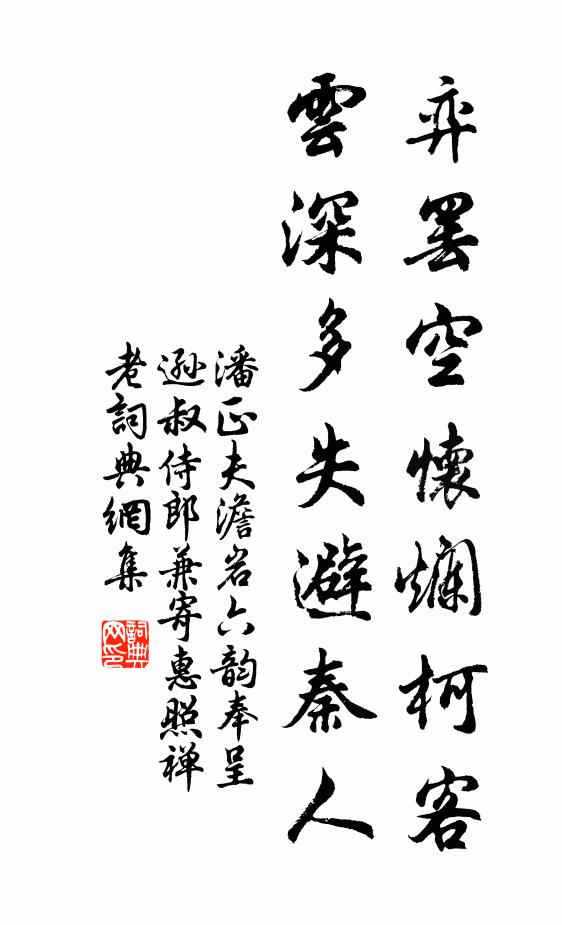 弈罷空懷爛柯客
雲深多失避秦人
潘正夫澹岩六韵奉呈
遜叔侍郎兼寄惠照禅
老詞典網集
詞典
网印